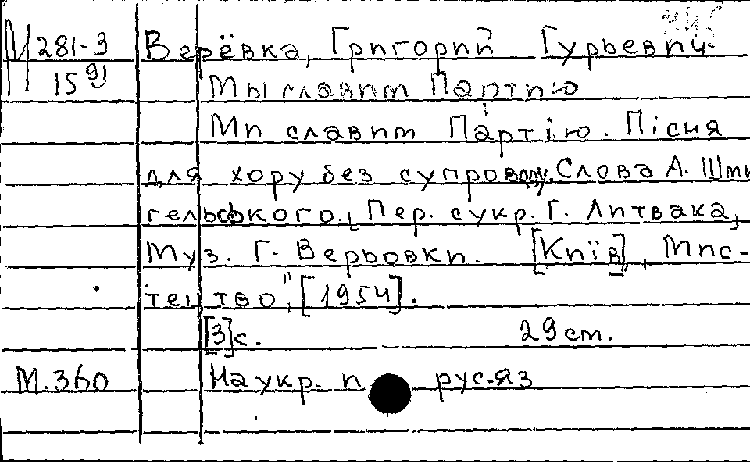 М 281-3 Верёвка, Григорий Гурьевич
15 91 Мы славим Партию
Ми славим Партію. Пісня
для хору без супроводу. Слова А. Шми
гельського. Пер. с укр. Г. Литвака,
Муз. Г. Верьовки. [Київ], "Мис-
тецтво", [1954].
[3]с. 29 cm.
М.360 На укр. и рус.яз